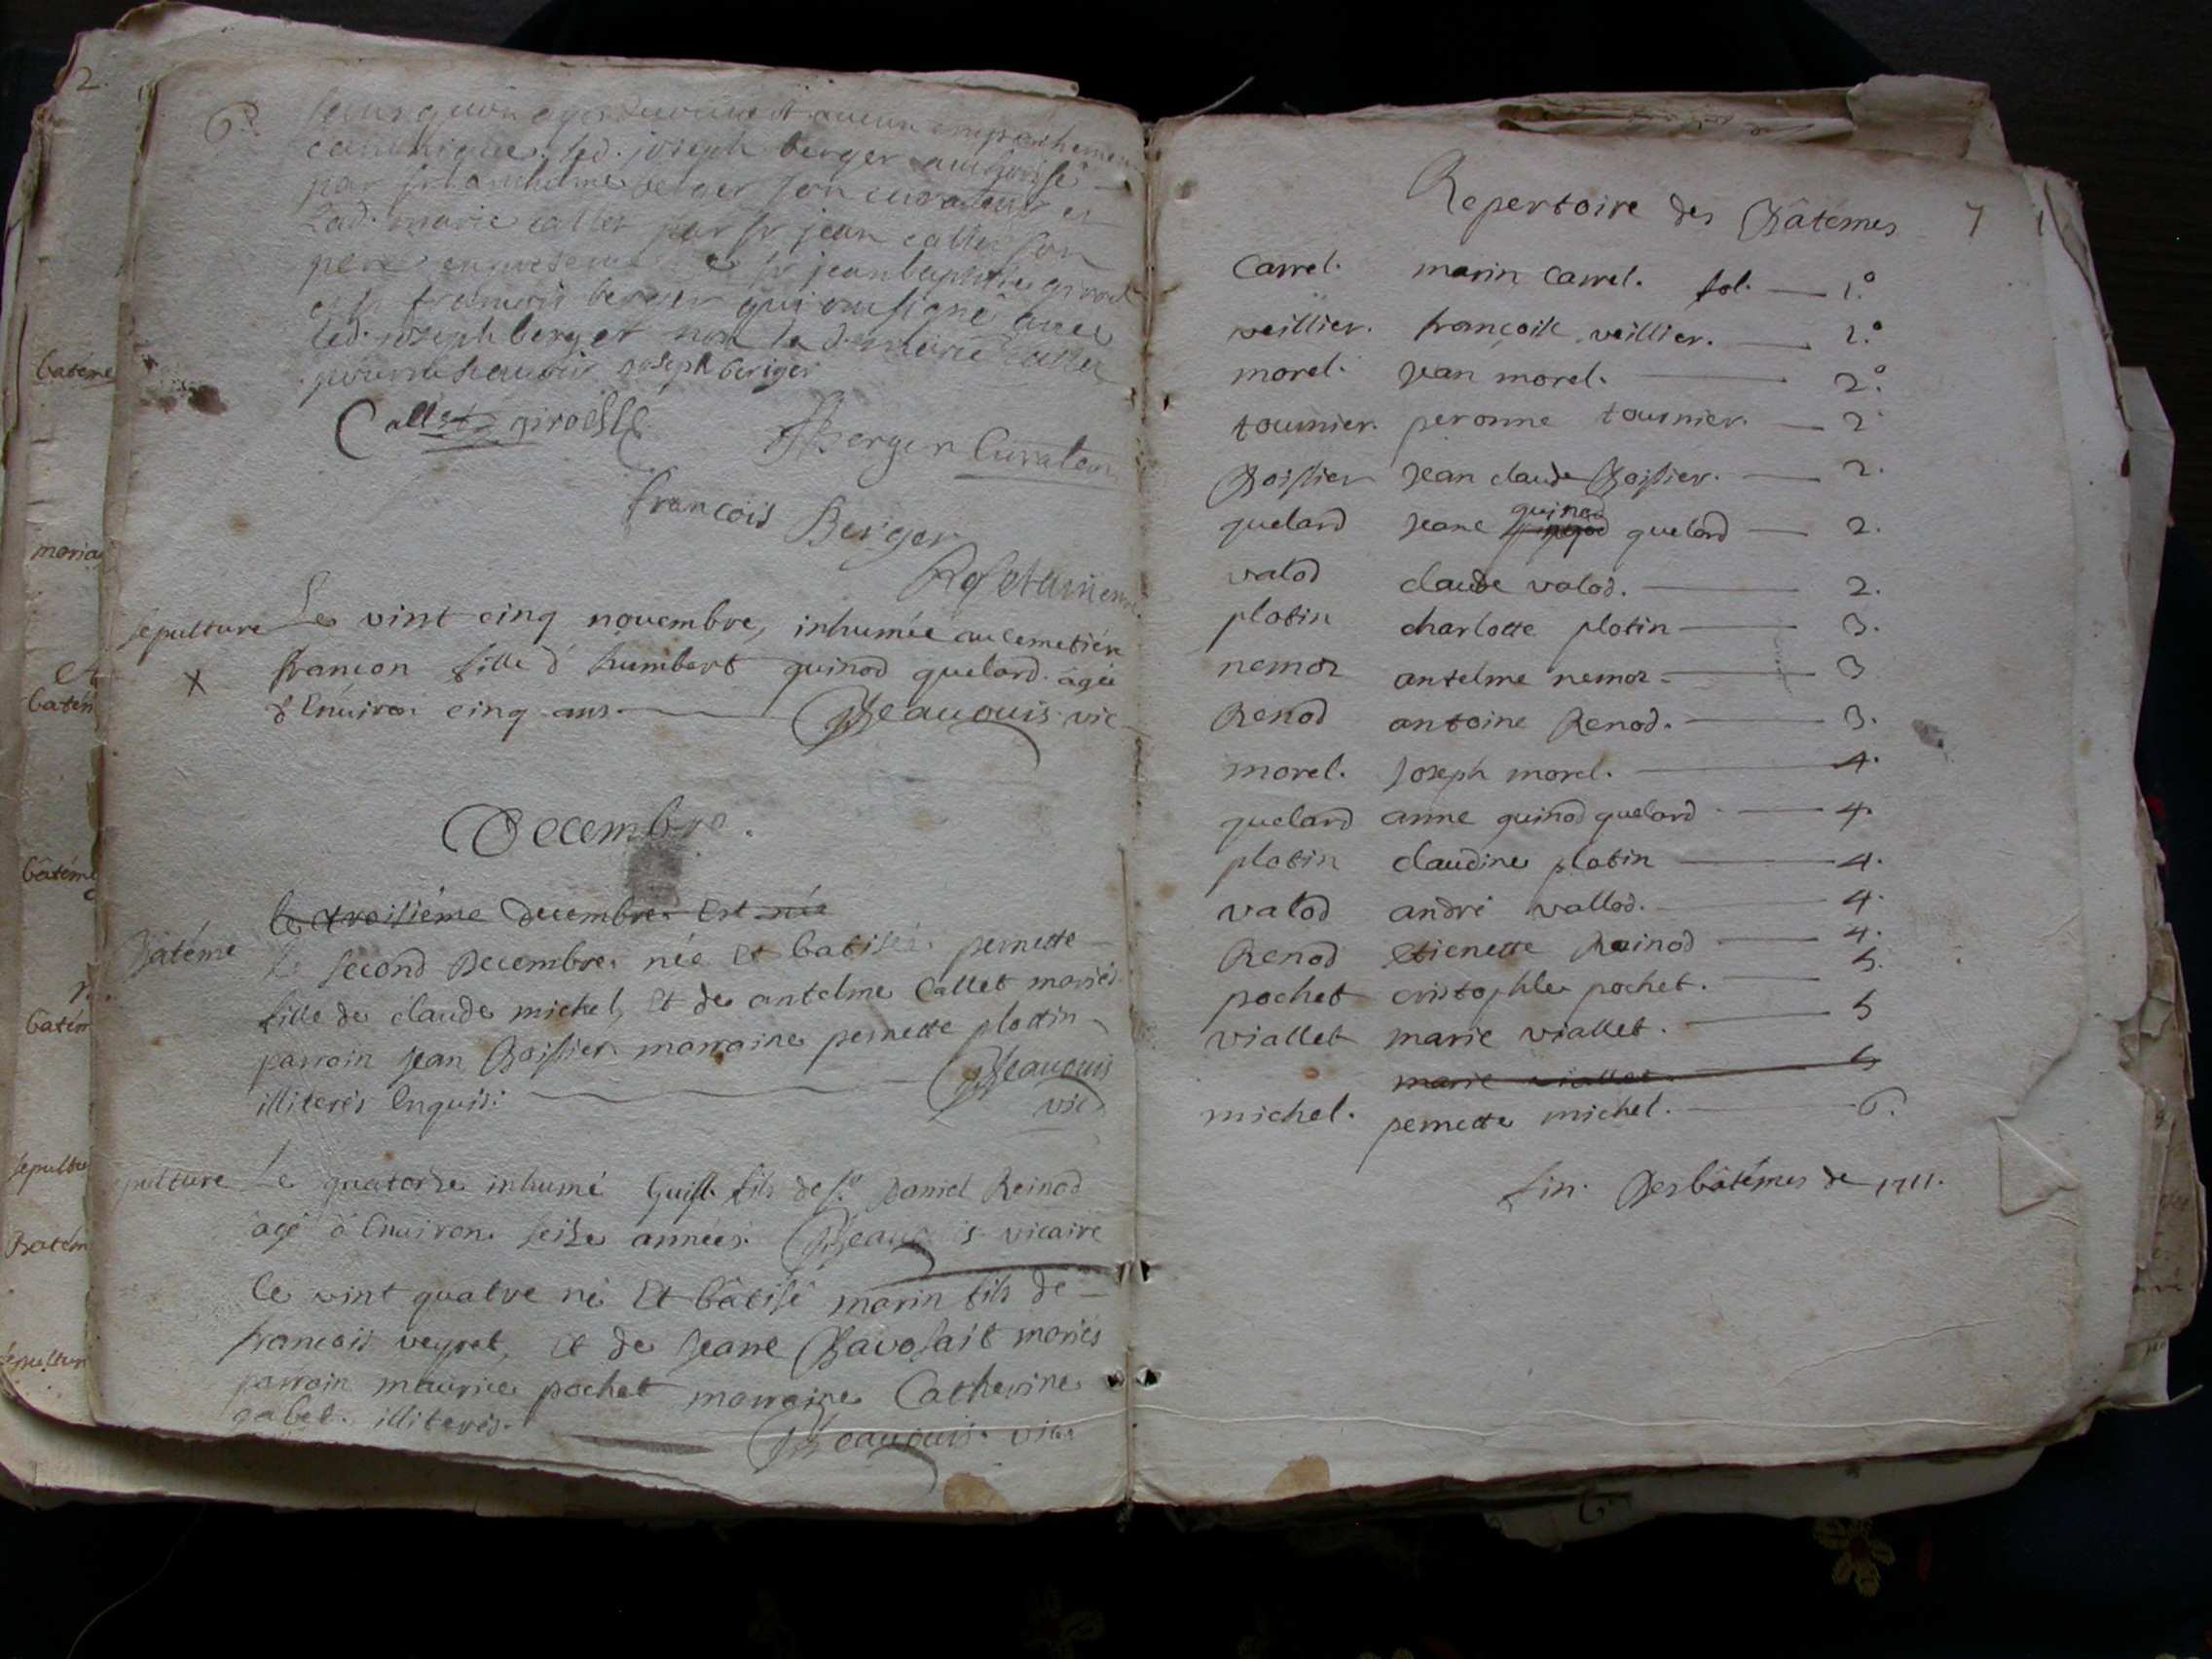 2.
batéme
maria
et
batém
bâtéme
batém
sepultu
Batém
sepultur
6º
sans qu'on aye decouvert aucun empechemen
canonique. led. joseph berger authorisé
par sr anthelme berger son curateur et
Lad. marie callet par sr jean callet son
pere en presence de sr jean baptiste girod
et sr françois berger qui ont signé avec
led. joseph berger non la d. marie callet
pour ne scavoir joseph beriger
Callet
Berger Curateur
francois Berger
sepulture Le vint cinq novembre, inhumée au cemetiére
X francon fille d' humbert quinod quelard. âgée
d'Environ cinq ans. Beauouis vic
Decembre.
le troisiéme decembre Est née
Batéme Le second Decembre née Et batisée pernette
fille de claude michel, Et de antelme Callet mariés
parrain jean Boissier marraine pernette plottin
illiterés Enquis: Beauouis
vic
pulture Le quatorze inhumé Guist. fils de fº Daniel Reinod
âgé d'Environ seize années. Beauouis vicaire
le vint quatre né Et bâtisé marin fils de
francois veyret, Et de Jeane Bavosait mariés
parrain maurice pochet marraine Catherine
gabet. illiterés. Beauouis. vic.
Repertoire des Bâtémes 7 1
Carrel. marin Carrel. fol. — 1.º
veillier. francoise veillier. — 1.º
morel. jean morel. — 2.º
tournier. peronne tournier. — 2
Boissier Jean claude Boissier. — 2.
quinod
quelard Jeane quelard — 2.
valod claude valod. — 2.
plotin charlotte plotin — 3.
nemoz antelme nemoz — 3
Renod antoine Renod. — 3.
morel. Joseph morel. — 4.
quelard anne quinod quelard — 4.
plotin claudine plotin — 4.
valod andré vallod. — 4.
Renod Etienette Reinod — 4.
pochet cristophle pochet. — 5.
viallet marie viallet. — 5
marie viallet. — 5
michel. pernette michel. — 6.
fin. Des bâtémes de 1711.